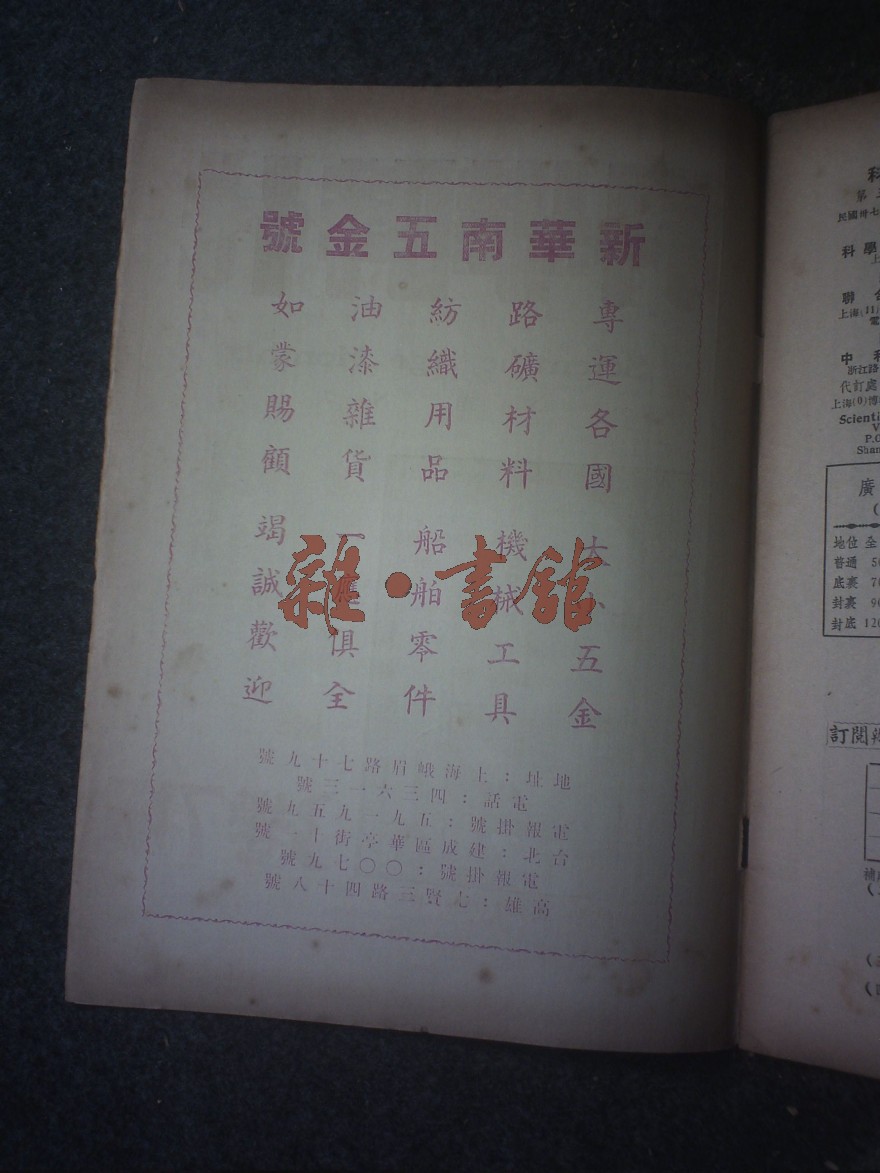 新華南五金號
專運各國大小五金
路礦材料機械工具
紡織用品船舶零件
油漆雜貨一應俱全
如蒙賜顧竭誠歡迎
地址：上海峨眉路七十九號
電話：四三六一三號
電報掛號：五九一九五九號
台北：建成區華亭街十一號
電報掛號：〇〇七九號
高雄：七賢三路四十八號
雜·書館
科
第
民國卅七
科學
上
聯合
上海(11)
電
中科
浙江路
代訂處
上海(0)博
Scienti
V
P.O
Shan
廣
(
地位 全
普通 50
底裏 70
封裏 90
封底 120
訂閱
補